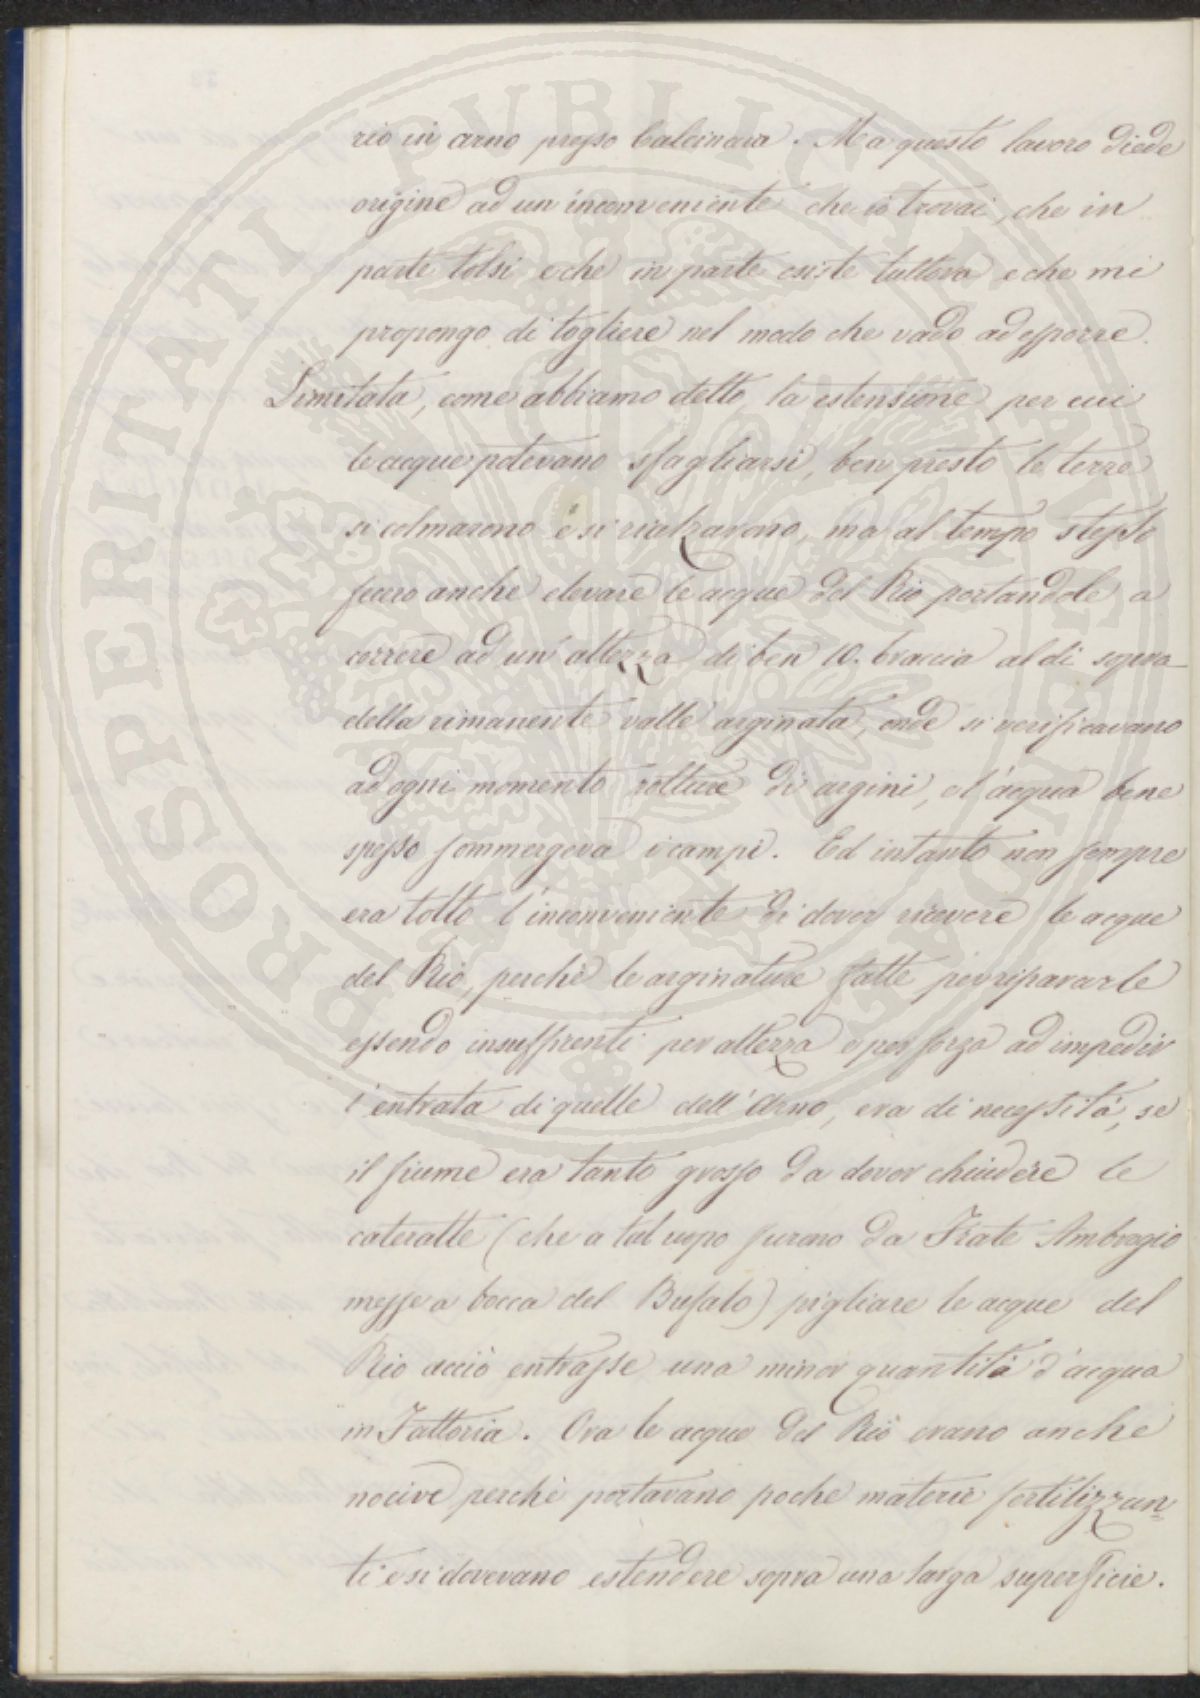 rio in arno presso Calcinaia. Ma questo lavoro diede
origine ad un' inconveniente che io trovai, che in
parte tolsi e che in parte esiste tuttora e che mi
propongo di togliere nel modo che vado ad esporre.
Limitata, come abbiamo detto, la estensione per cui
le acque potevano sfagliarsi, ben presto le terre
si colmarono e si rialzavano, ma al tempo stesso
fecero anche elevare le acque del Rio portandole a
correre ad un' altezza di ben 10. braccia al di sopra
della rimanente valle arginata, onde si verificavano
ad ogni momento rotture di argini, e l'acqua bene
spesso sommergeva i campi. Ed intanto non sempre
era tolto l'inconveniente di dover ricevere le acque
del Rio, perchè le arginature fatte per ripararle
essendo insufficienti per altezza e per forza ad impedir
l'entrata di quelle dell'Arno, era di necessità, se
il fiume era tanto grosso da dover chiudere le
cateratte (che a tal uopo furono da Frate Ambrogio
messe a bocca del Bufalo) pigliare le acque del
Rio acciò entrasse una minor quantità d'acqua
in Fattoria. Ora le acque del Rio erano anche
nocive perchè portavano poche materie fertilizzan=
ti e si dovevano estendere sopra una larga superficie.
PROSPERITATI PVBLICAE AVGENDAE